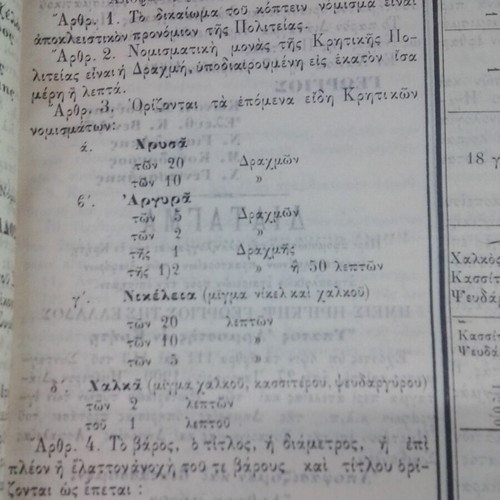 Ἄρθρ. 1. Τὸ δικαίωμα τοῦ κόπτειν νόμισμα εἶναι
ἀποκλειστικὸν προνόμιον τῆς Πολιτείας.
Ἄρθρ. 2. Νομισματικὴ μονὰς τῆς Κρητικῆς Πο-
λιτείας εἶναι ἡ Δραχμή, ὑποδιαιρουμένη εἰς ἑκατὸν ἴσα
μέρη ἢ λεπτά.
Ἄρθρ. 3. Ὁρίζονται τὰ ἑπόμενα εἴδη Κρητικῶν
νομισμάτων:
ά. Χρυσᾶ
τῶν 20 Δραχμῶν
τῶν 10 »
β'. Ἀργυρᾶ
τῶν 5 Δραχμῶν
τῶν 2 »
τῆς 1 Δραχμῆς
τῆς 1/2 » ἢ 50 λεπτῶν
γ'. Νικέλεια (μῖγμα νίκελ καὶ χαλκοῦ)
τῶν 20 λεπτῶν
τῶν 10 »
τῶν 5 »
δ'. Χαλκᾶ (μῖγμα χαλκοῦ, κασσιτέρου, ψευδαργύρου)
τῶν 2 λεπτῶν
τοῦ 1 λεπτοῦ
Ἄρθρ. 4. Τὸ βάρος, ὁ τίτλος, ἡ διάμετρος, ἡ ἐπὶ
πλέον ἢ ἔλαττον ἀνοχὴ τοῦ τε βάρους καὶ τίτλου ὁρί-
ζονται ὡς ἕπεται:
18 γ
Χαλκὸ
Κασσίτ
Ψευδα
Κασσίτ
Ψευδά